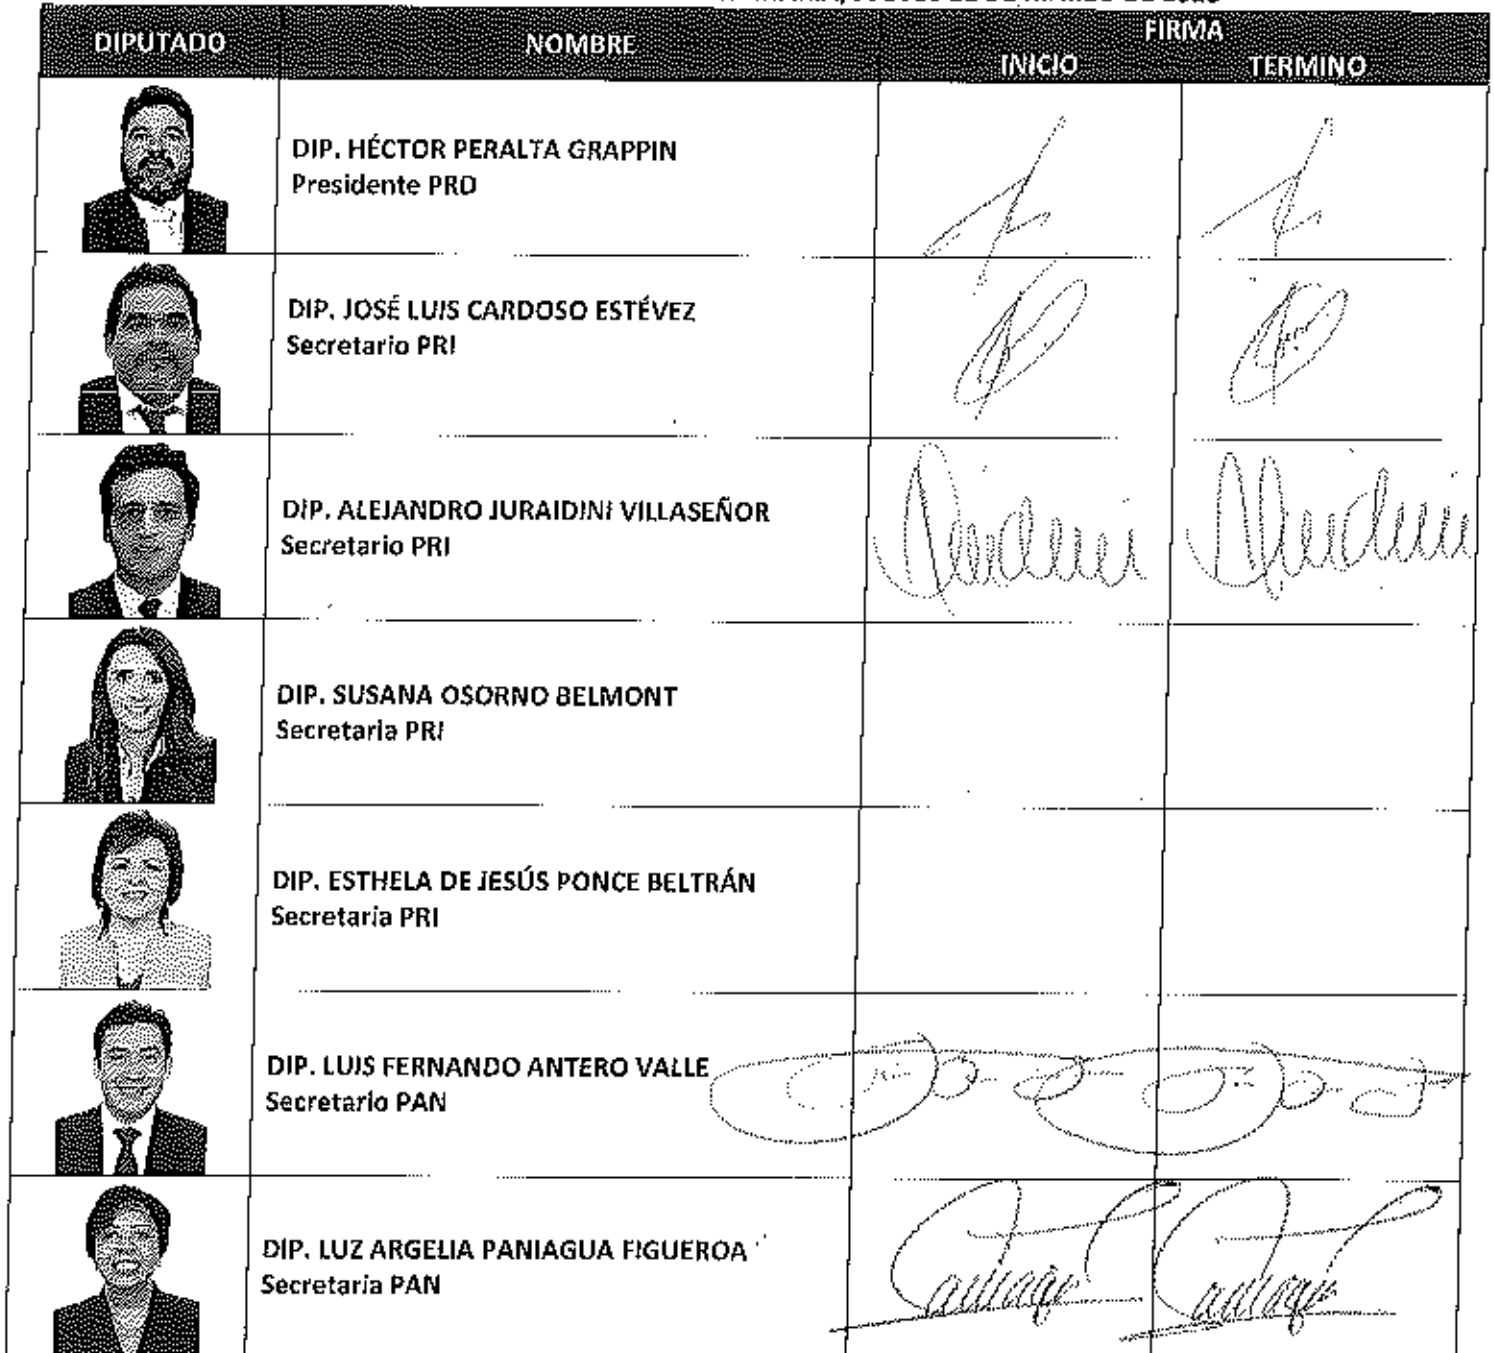 DIPUTADO NOMBRE FIRMA
INICIO TERMINO
DIP. HÉCTOR PERALTA GRAPPIN
Presidente PRD
DIP. JOSÉ LUIS CARDOSO ESTÉVEZ
Secretario PRI
DIP. ALEJANDRO JURAIDINI VILLASEÑOR
Secretario PRI
DIP. SUSANA OSORNO BELMONT
Secretaria PRI
DIP. ESTHELA DE JESÚS PONCE BELTRÁN
Secretaria PRI
DIP. LUIS FERNANDO ANTERO VALLE
Secretario PAN
DIP. LUZ ARGELIA PANIAGUA FIGUEROA
Secretaria PAN